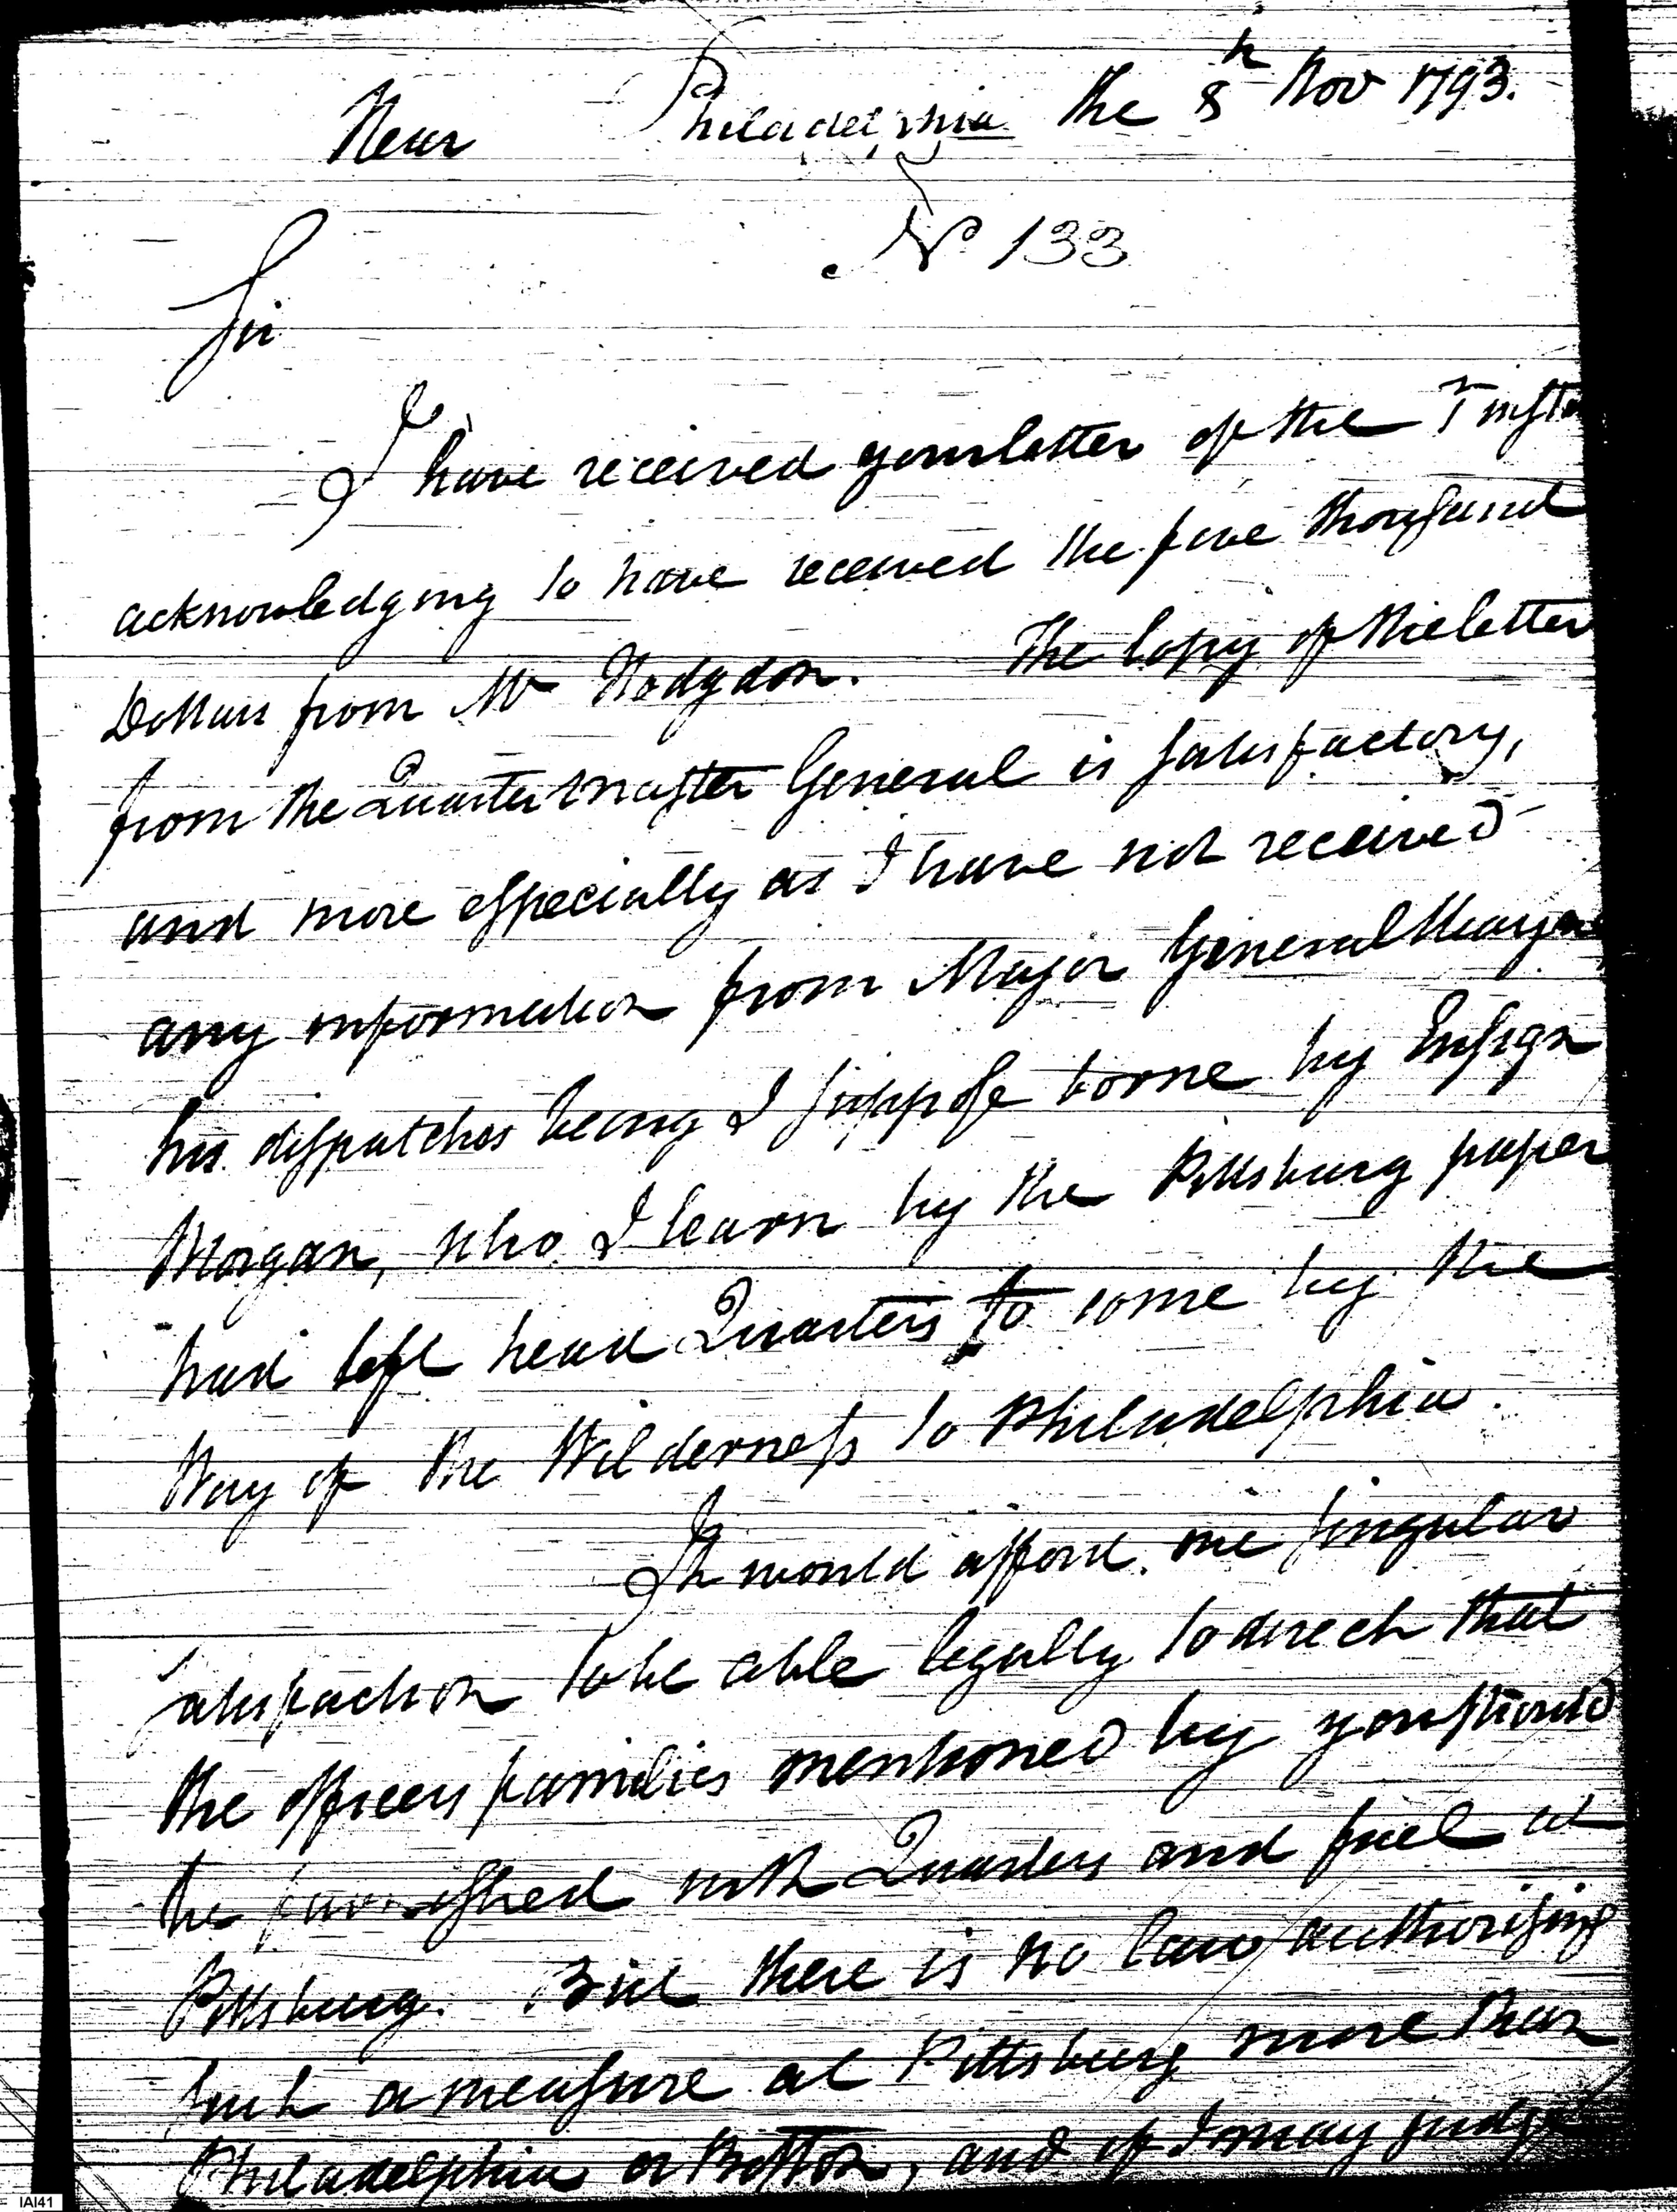 Near Philadelphia the 8th Nov 1793.
No 133
Sir
I have received your letter of the 1st inst
acknowledging to have received the five thousand
Dollars from Mr Hodgdon. The Copy of the letter
from the Quarter Master General is satisfactory,
and more especially as I have not received
any information from Major General Wayne
his dispatches being I suppose borne by Ensign
Morgan, who I learn by the Pittsburg paper
had left head Quarters to come by the
Way of the Wilderness to Philadelphia.
It would afford me singular
satisfaction to be able legally to direct that
the officers families mentioned by you should
be furnished with Quarters and fuel at
Pittsburg. But there is no law authorising
such a measure at Pittsburg more than
Philadelphia or Boston, and if I may judge
IAI41